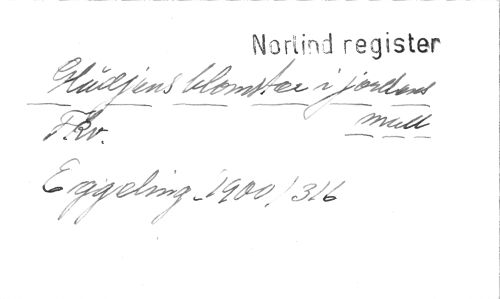 Norlind register
Glädjens blomster i jordens
mull
F.kv.
Eggeling 1900/316